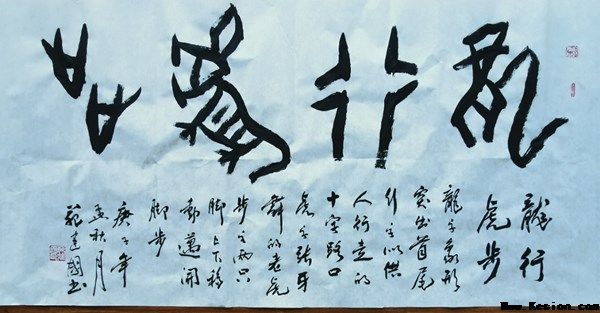 龍行虎步
龍行
虎步
龍字象形
突出首尾
行字以供
人行走的
十字路口
虎字張牙
舞的老虎
步字兩只
脚上下移
動邁開
脚步
庚子年
孟秋月
范建國書
Www.Kesion.com